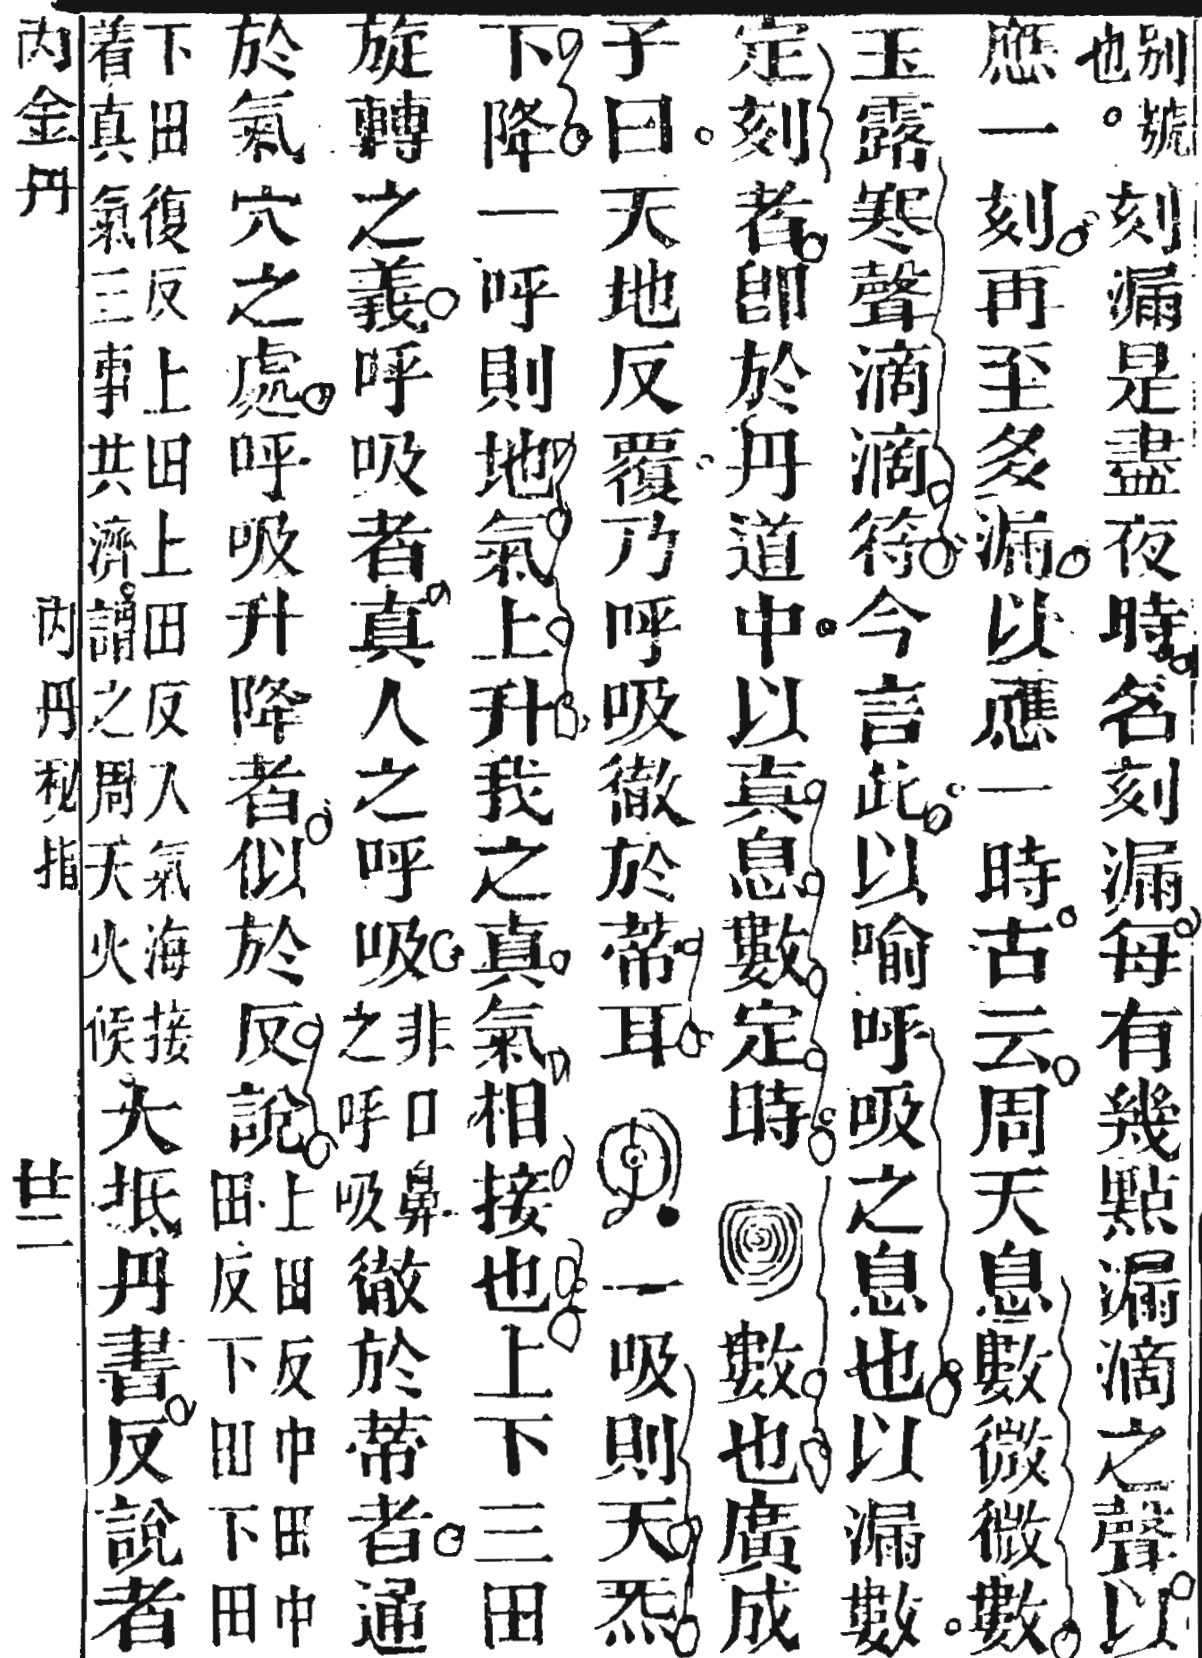 别號
也。刻漏是盡夜時名刻漏每有幾點漏滴之聲以
應一刻再至多漏以應一時古云周天息數微微數
玉露寒聲滴滴符今言此以喻呼吸之息也以漏數
定刻者卽於丹道中以真息數定時數也廣成
子曰天地反覆乃呼吸徹於蒂耳一吸則天炁
下降一呼則地氣上升我之真氣相接也上下三田
旋轉之義呼吸者真人之呼吸非口鼻
之呼吸徹於蒂者通
於氣穴之處呼吸升降者似於反說上田反中田中
田反下田下田
下田復反上田上田反人氣海接
着真氣三事共濟謂之周天火候大抵丹書反說者
内金丹
内丹秘指
廿二